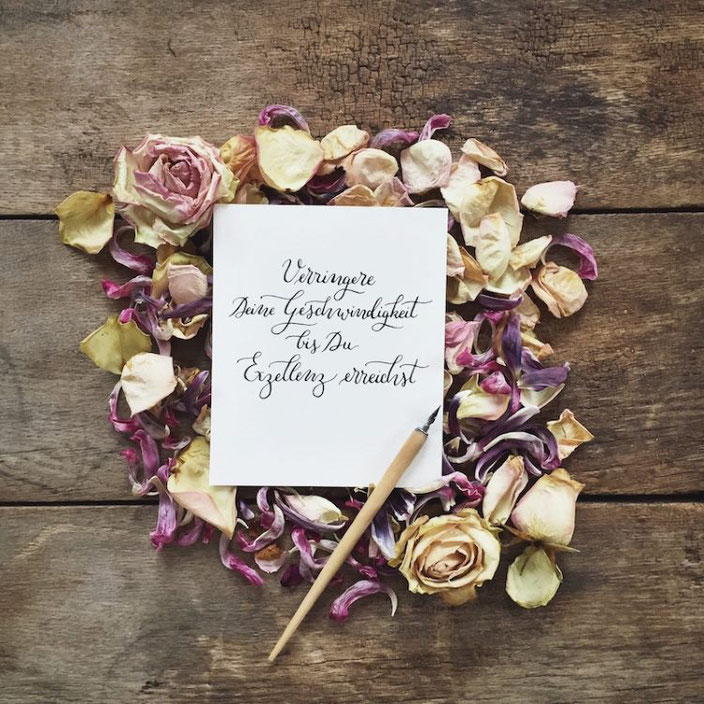 Verringere
Deine Geschwindigkeit
bis Du
Exzellenz erreichst